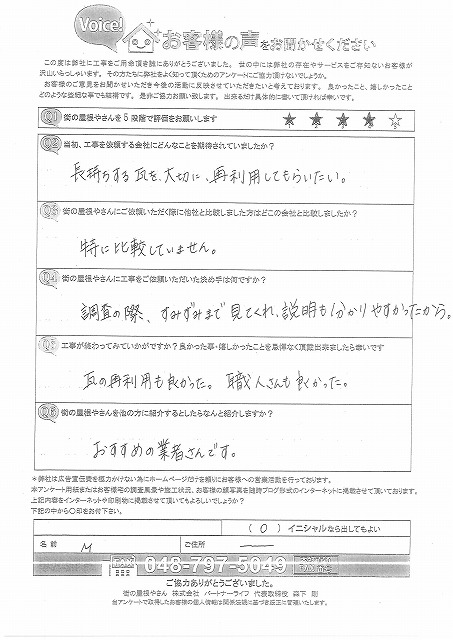 Voice!
お客様の声をお聞かせください
この度は弊社に工事をご用命頂き誠にありがとうございました。世の中には弊社の存在やサービスをご存知ないお客様が
沢山いらっしゃいます。その方たちに弊社をよく知って頂くためのアンケートにご協力頂けないでしょうか。
お客様のご意見をお聞かせいただき今後の活動に反映させていただきたいと考えております。良かったこと、嬉しかったこと
どのような些細な事でも結構です。是非ご協力お願い致します。出来るだけ具体的に書いて頂ければ幸いです。
Q1 街の屋根やさんを5段階で評価をお願いします ★ ★ ★ ★ ☆
Q2 当初、工事を依頼する会社にどんなことを期待されていましたか?
長持ちする瓦を、大切に、再利用してもらいたい。
Q3 街の屋根やさんにご依頼いただく際に他社と比較しました方はどこの会社と比較しましたか?
特に比較していません。
Q4 街の屋根やさんに工事をご依頼いただいた決め手は何ですか?
調査の際、すみずみまで見てくれ、説明も分かりやすかったから。
Q5 工事が終わってみていかがですか?良かった事・嬉しかったことを忌憚なく頂戴出来ましたら幸いです
瓦の再利用も良かった。職人さんも良かった。
Q6 街の屋根やさんを他の方に紹介するとしたらなんと紹介しますか?
おすすめの業者さんです。
*弊社は広告宣伝費を極力かけない為にホームページだけを頼りにお客様への営業活動を行っております。
本アンケート用紙またはお客様宅の調査風景や施工状況、お客様の顔写真を随時ブログ形式のインターネットに掲載させて頂いております。
上記内容をインターネットや印刷物に掲載させて頂いてもよろしいでしょうか?
下記の中から〇印をお付下さい。
( O ) イニシャルなら出してもよい
名前 M ご住所
048-797-5049
ご協力ありがとうございました。
街の屋根やさん 株式会社 パートナーライフ 代表取締役 森下 剛
当アンケートで取得したお客様の個人情報は関係法規に基づき厳正に管理いたします。